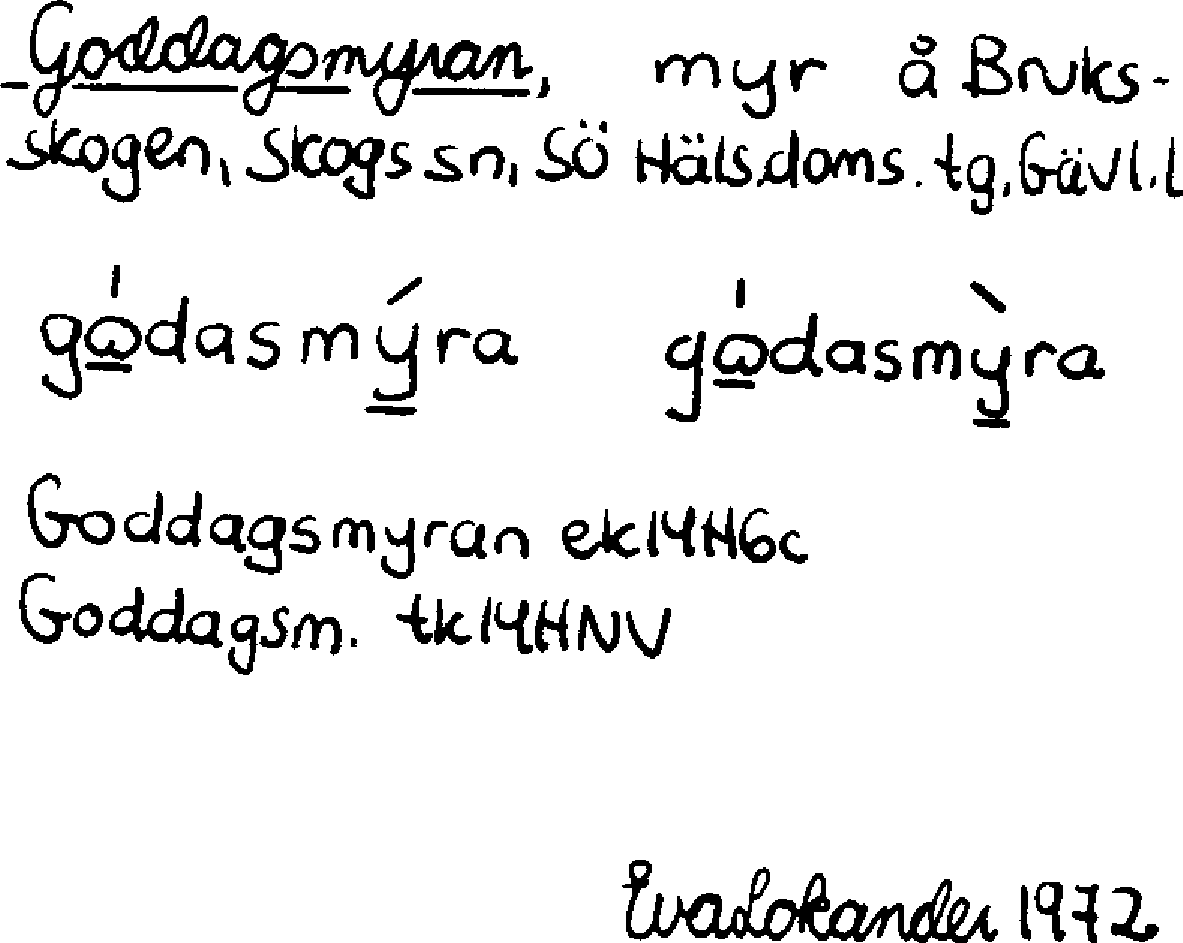 Goddagsmyran, myr å Bruks-
skogen, Skogs sn, Sö Häls.doms. tg, Gävl. l
gώ̲dasmý̲ra gώ̲dasmỳ̲ra
Goddagsmyran ek14H6c
Goddagsm. tk14HNV
Eva Lokander 1972